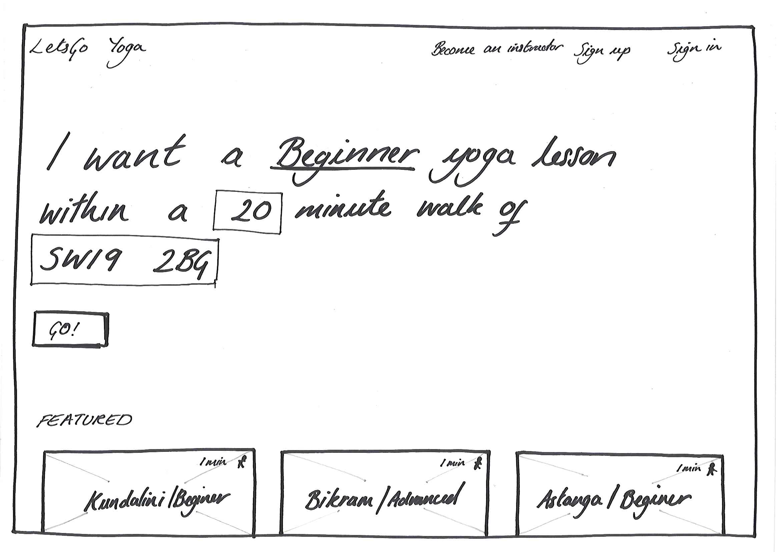 LetsGo Yoga
Become an instructor Sign up Sign in
I want a Beginner yoga lesson
within a 20 minute walk of
SW19 2BG
GO!
FEATURED
1 min
Kundalini/Beginer
1 min
Bikram/Advanced
1 min
Astanga/Beginer